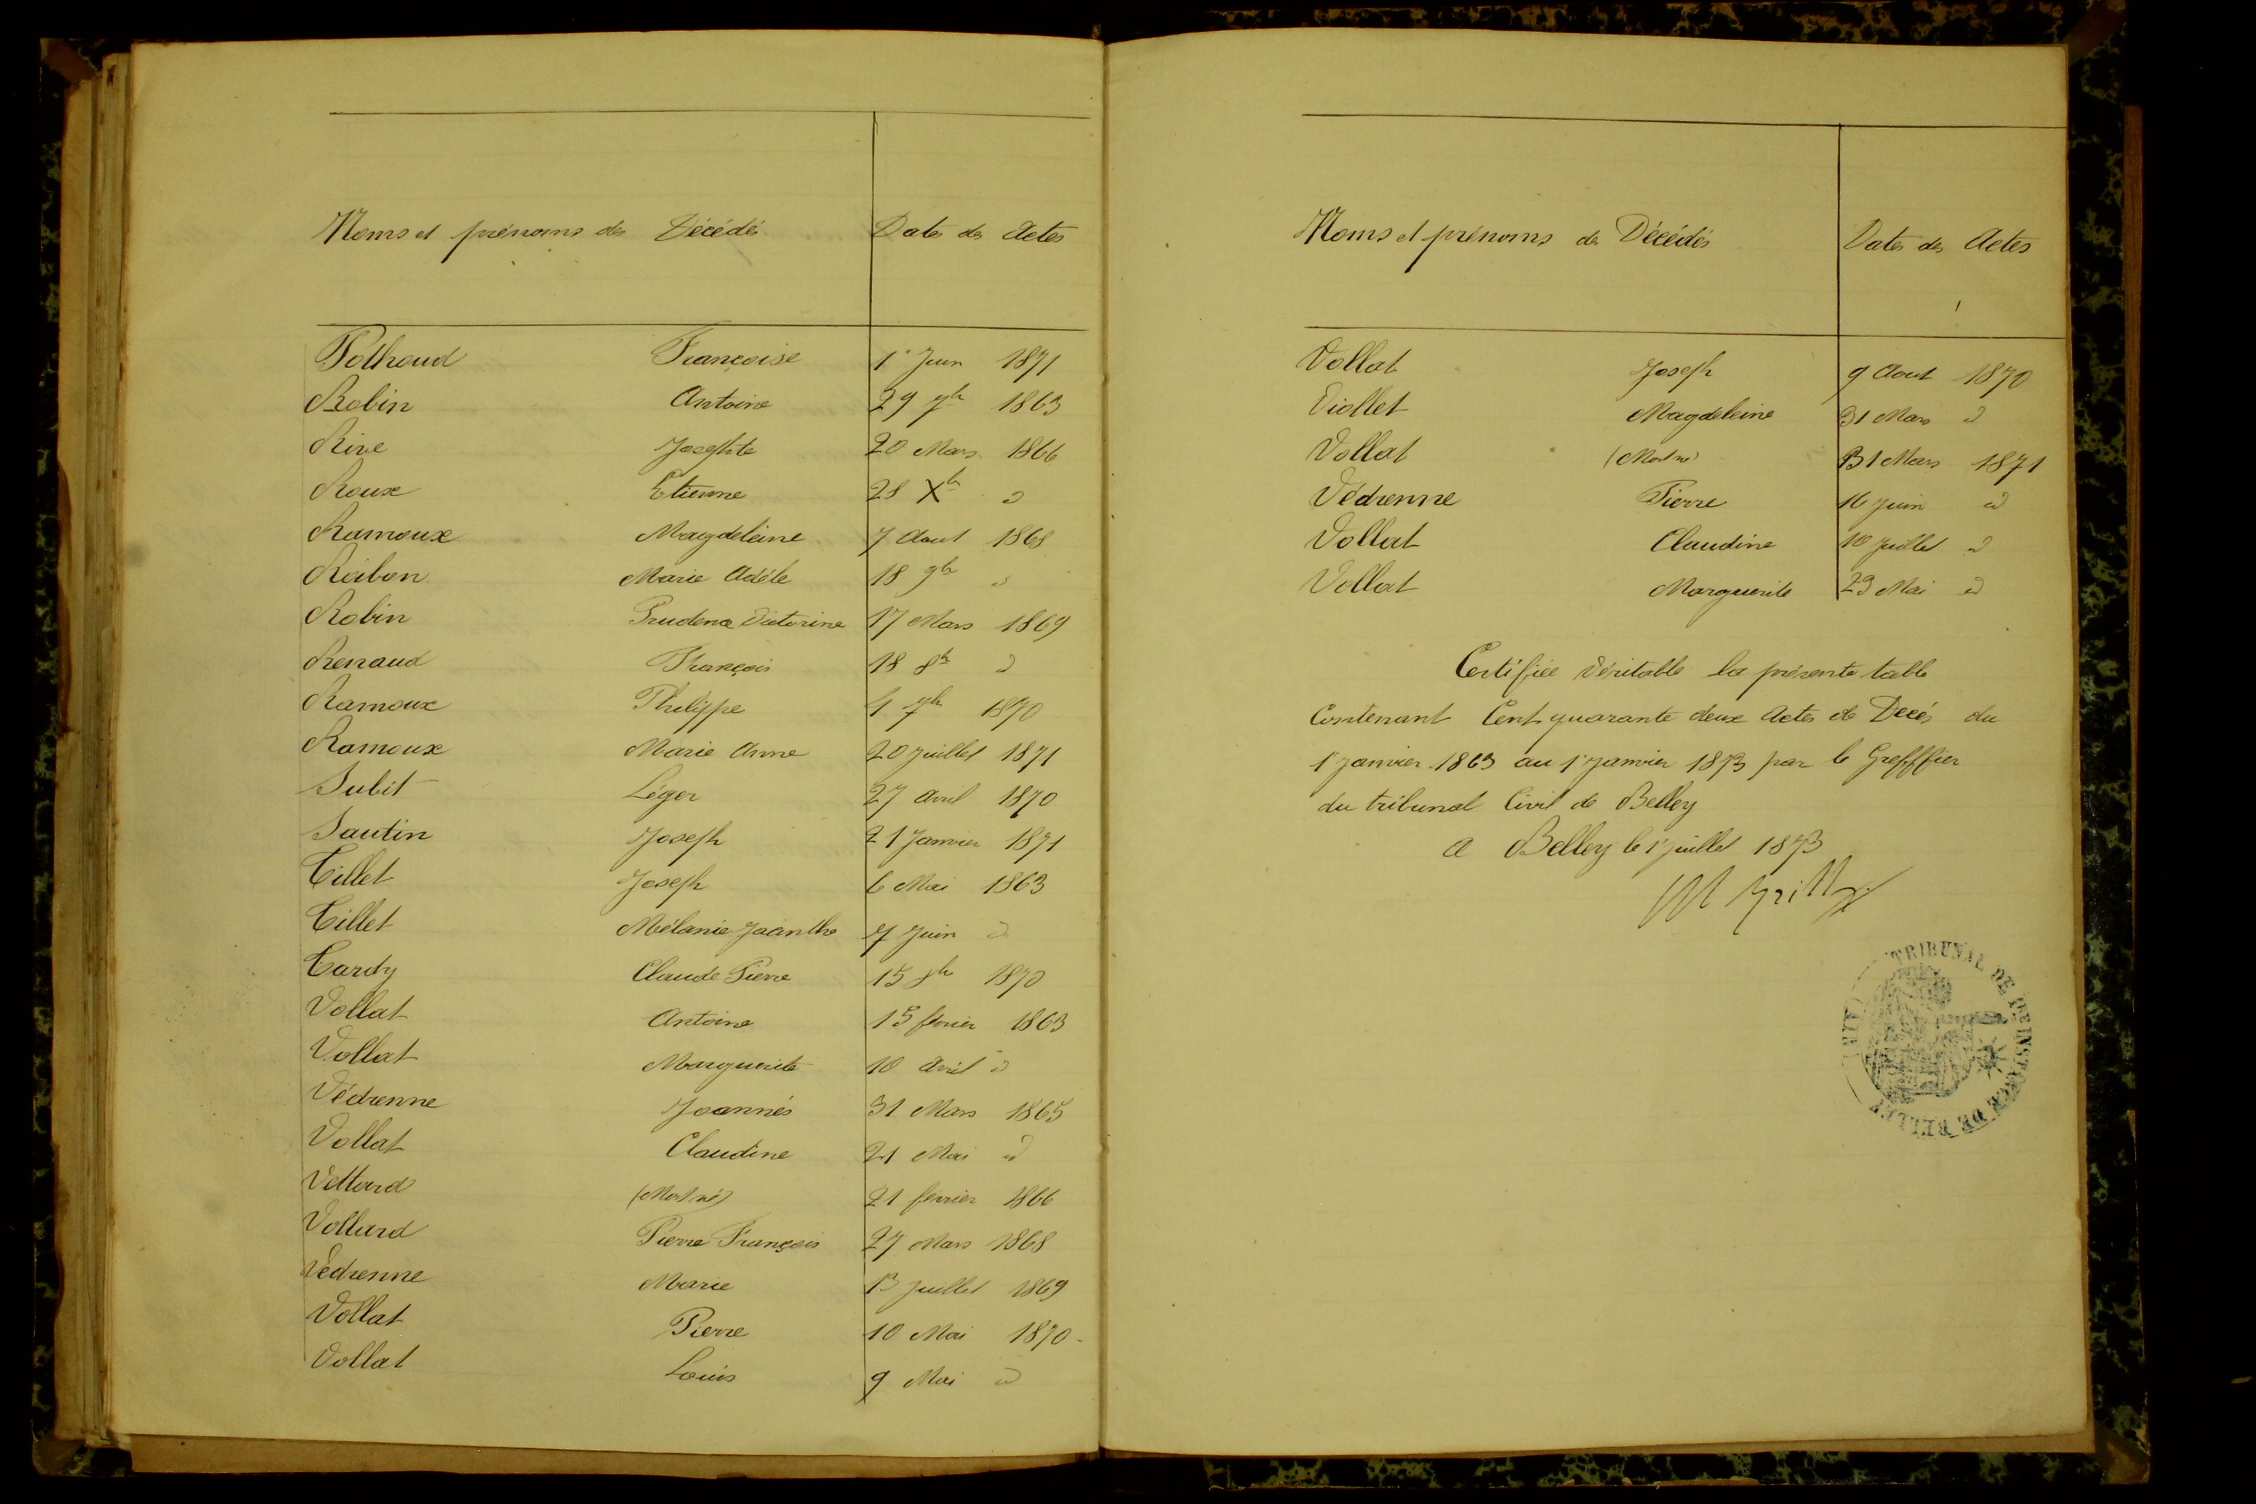 Noms et prénoms des Décédés Dates des Actes
Polhoud Françoise 1er Juin 1871
Robin Antoine 29 7bre 1863
Rive Josephte 20 Mars 1866
Roux Etienne 28 Xbre d
Ramoux Magdeleine 7 Aout 1868
Roibon Marie Adèle 18 9bre d
Robin Prudence Victorine 17 Mars 1869
Renaud François 18 8bre d
Ramoux Philippe 1 7bre 1870
Ramoux Marie Anne 20 juillet 1871
Subit Léger 27 Avril 1870
Sautin Joseph 21 Janvier 1871
Tillet Joseph 6 Mai 1863
Tillet Mélanie Jacinthe 7 Juin d
Tardy Claude Pierre 15 8bre 1870
Vollat Antoine 15 février 1863
Vollat Marguerite 10 Avril d
Védrenne Joannés 31 Mars 1865
Vollat Claudine 21 Mai d
Vollard (Mort né) 21 fevrier 1866
Vollard Pierre François 27 Mars 1868
Vedrenne Marie 13 Juillet 1869
Vollat Pierre 10 Mai 1870
Vollat Louis 9 Mai d
Noms et prénoms des Décédés Dates des Actes
Vollat Joseph 9 Aout 1870
Viollet Magdeleine 31 Mars d
Vollat (Mort né) 31 Mars 1871
Védrenne Pierre 16 Juin d
Vollat Claudine 10 Juillet d
Vollat Marguerite 29 Mai d
Certifiée véritable la présente table
Contenant Cent quarante deux Actes de Decés du
1er janvier 1863 au 1er Janvier 1873 par le Greffier
du tribunal Civil de Belley
a Belley le 1er juillet 1873
TRIBUNAL DE 1RE INSTANCE DE BELLEY